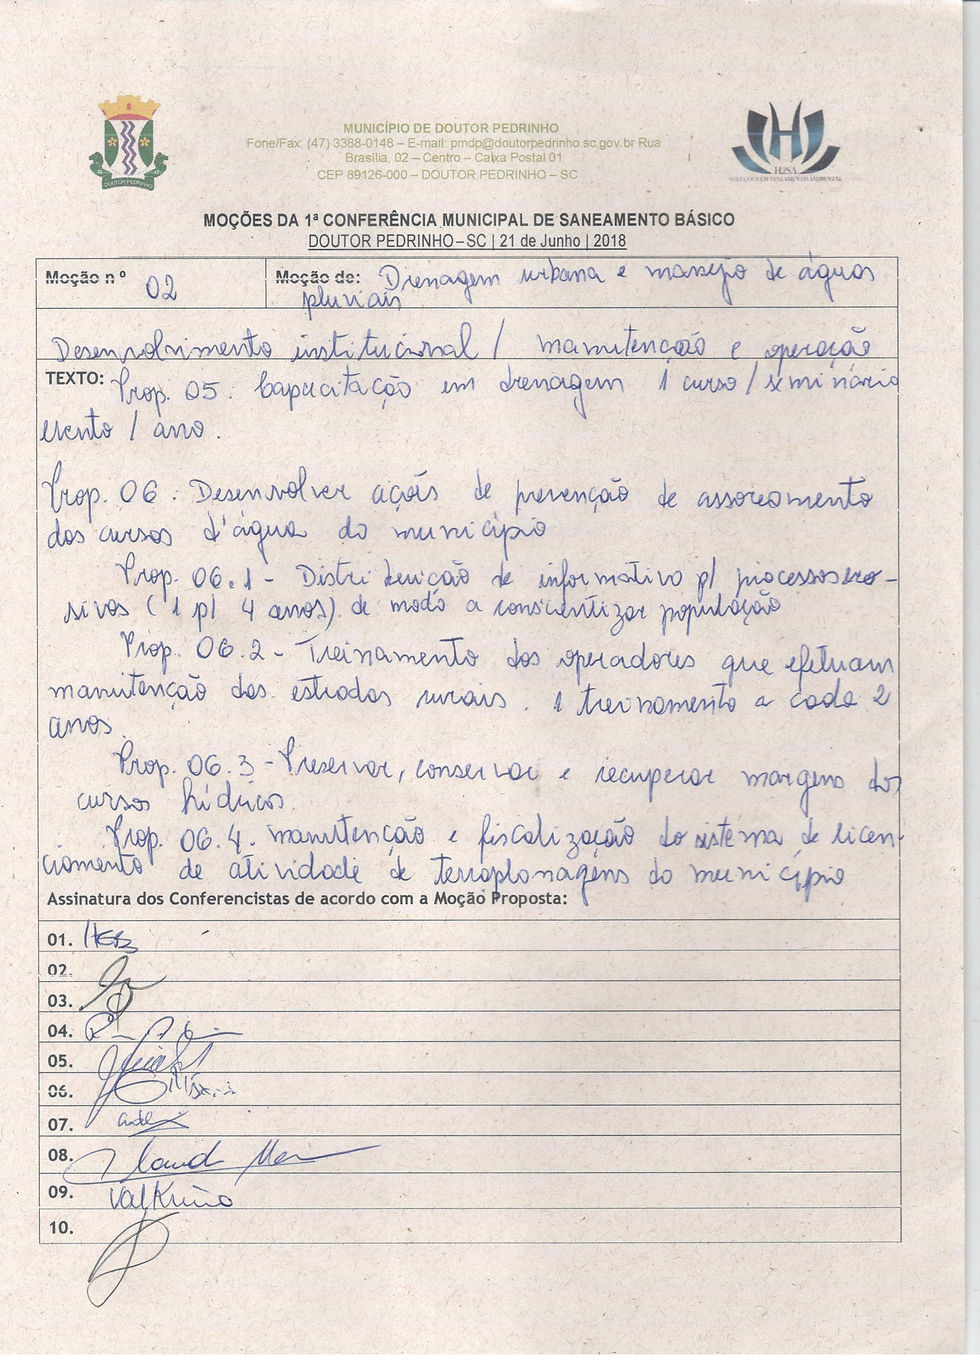 DOUTOR PEDRINHO
MUNICÍPIO DE DOUTOR PEDRINHO
Fone/Fax: (47) 3388-0148 – E-mail: pmdp@doutorpedrinho.sc.gov.br Rua
Brasília, 02 – Centro – Caixa Postal 01
CEP 89126-000 – DOUTOR PEDRINHO – SC
H2SA
SOLUÇÕES EM SANEAMENTO AMBIENTAL
MOÇÕES DA 1ª CONFERÊNCIA MUNICIPAL DE SANEAMENTO BÁSICO
DOUTOR PEDRINHO – SC | 21 de Junho | 2018
Moção nº 02
Moção de: Drenagem urbana e manejo de águas
pluviais
Desenvolvimento institucional / manutenção e operação
TEXTO: Prop. 05. Capacitação em drenagem 1 curso / seminário
evento / ano.
Prop. 06. Desenvolver ações de prevenção de assoreamento
dos cursos d'água do município
Prop. 06.1 - Distribuição de informativo p/ processos ero-
sivos (1 p/ 4 anos) de modo a conscientizar população
Prop. 06.2 - Treinamento dos operadores que efetuam
manutenção das estradas rurais. 1 treinamento a cada 2
anos.
Prop. 06.3 - Preservar, conservar e recuperar margens dos
cursos hídricos.
Prop. 06.4. manutenção e fiscalização do sistema de licen-
ciamento de atividade de terraplanagens do município
Assinatura dos Conferencistas de acordo com a Moção Proposta:
01.
02.
03.
04.
05.
06.
07.
08.
09.
10.